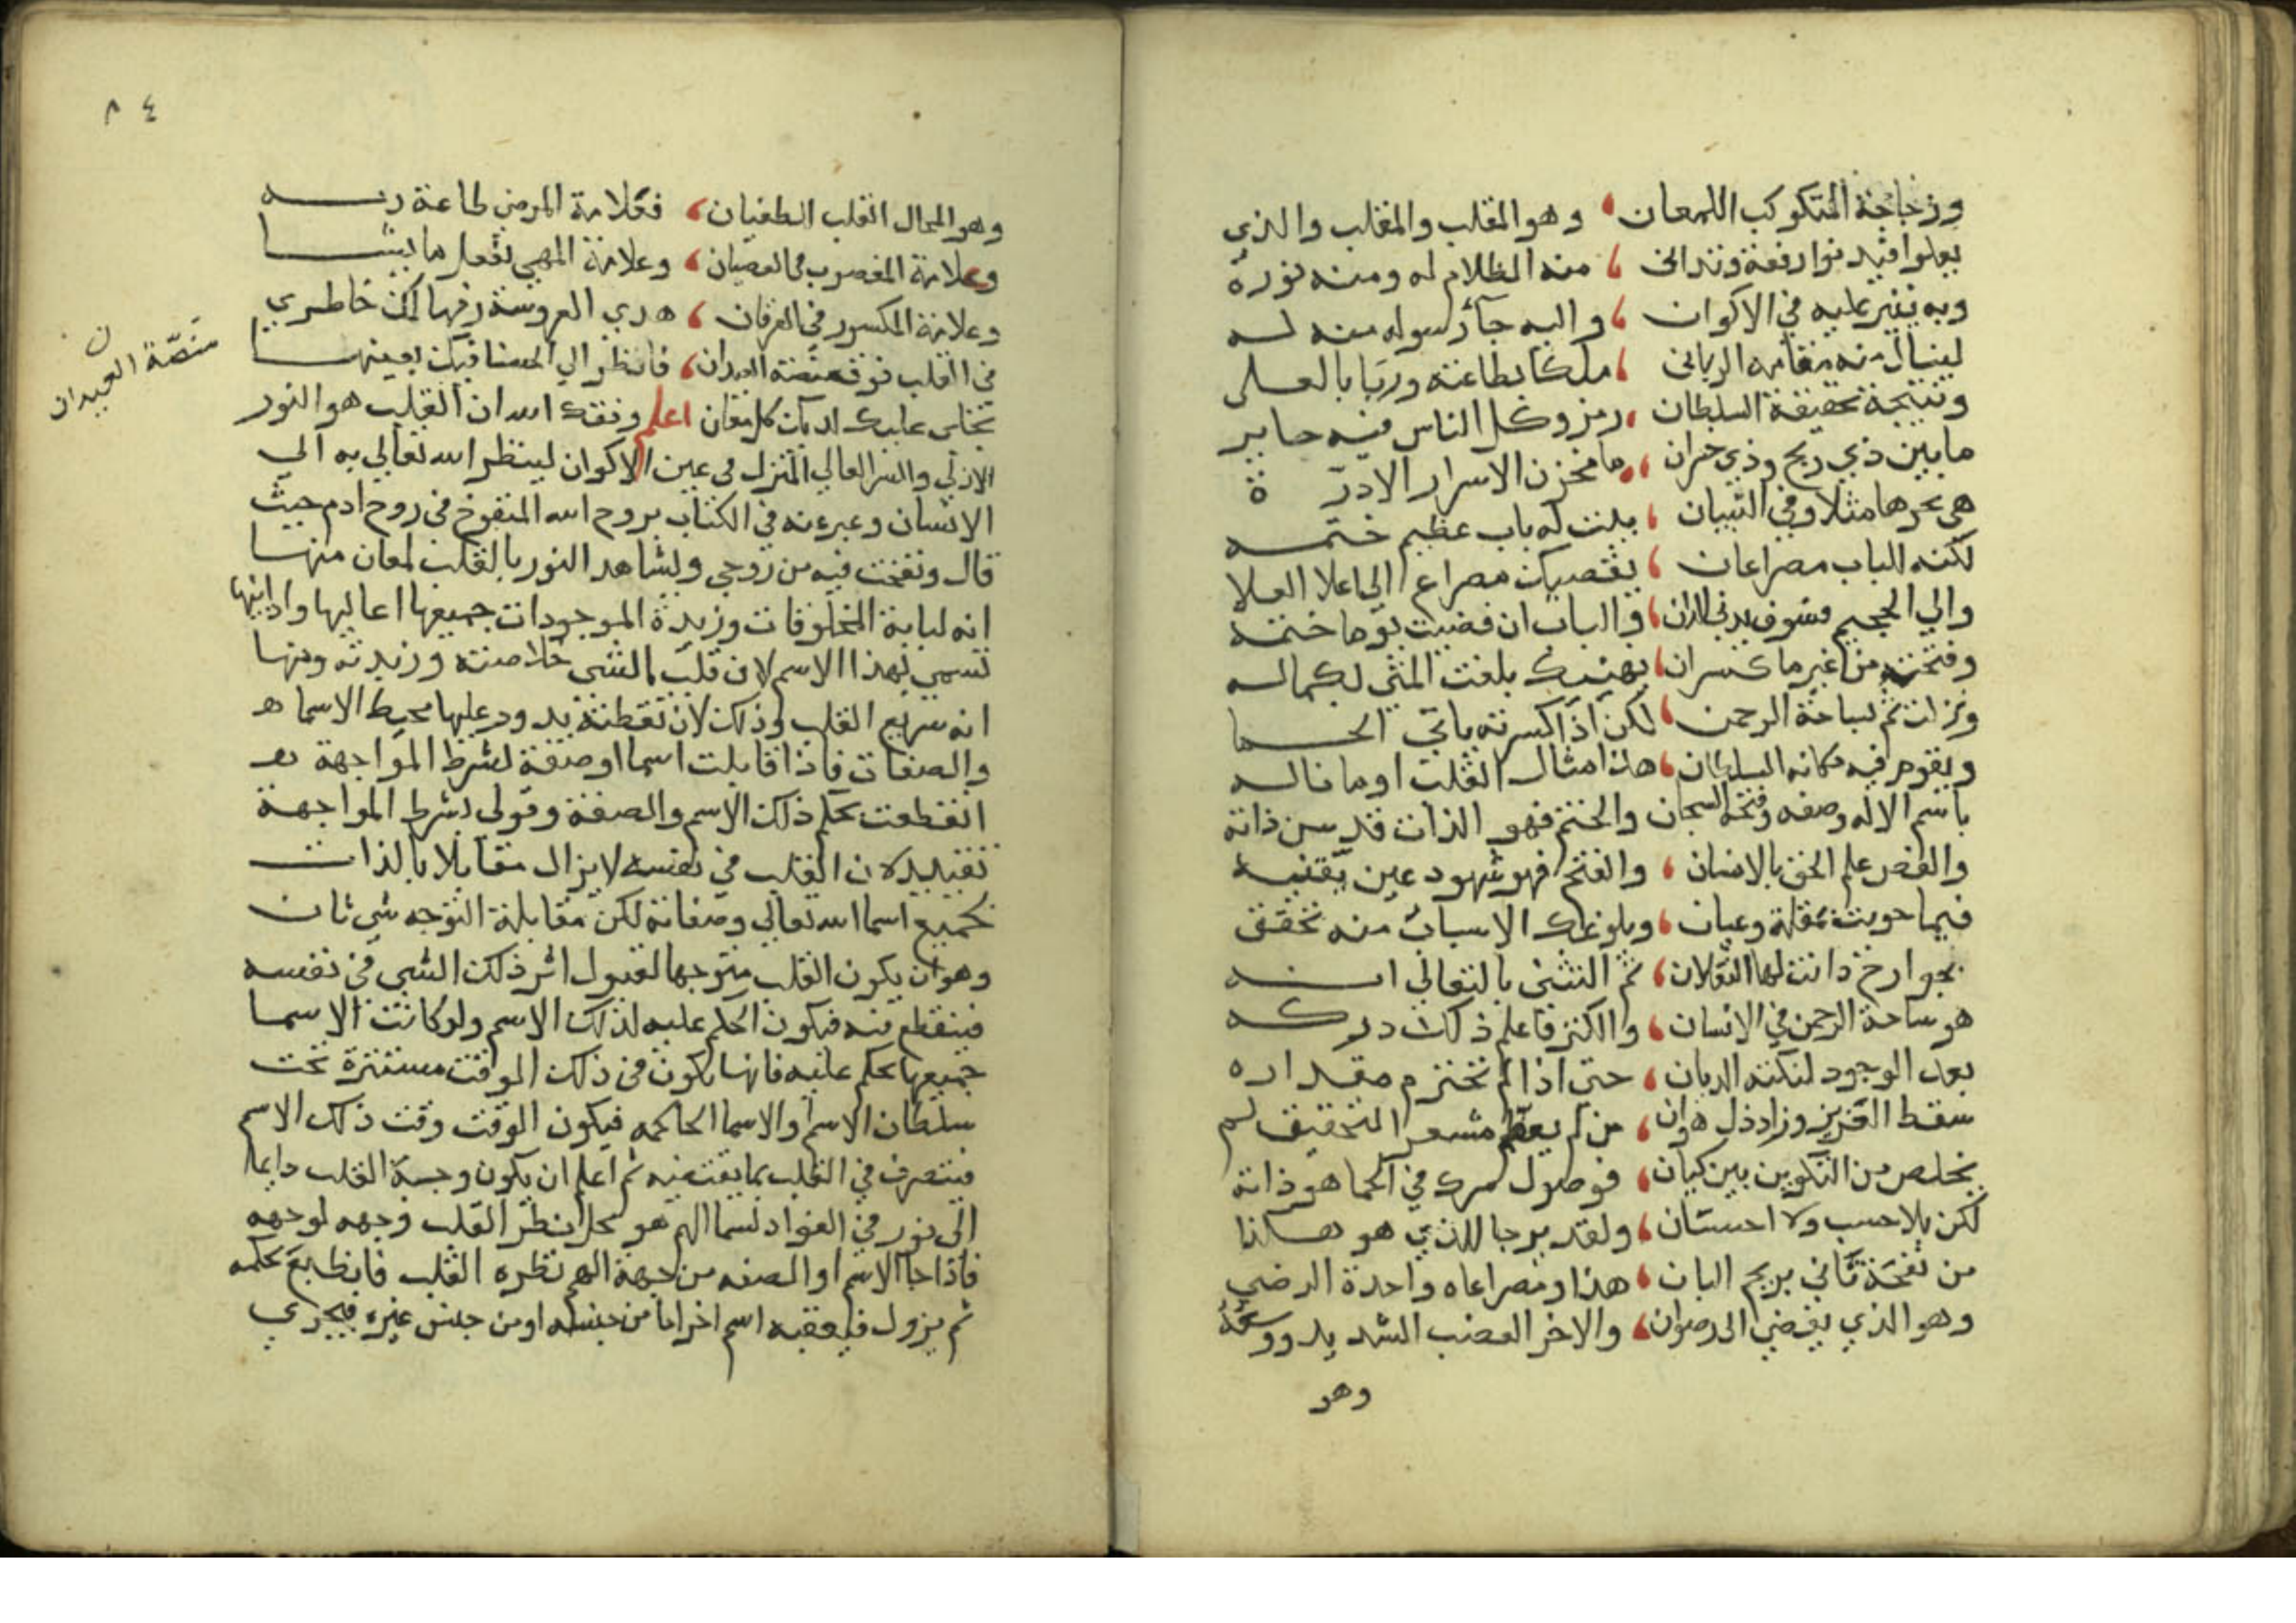 وزجاجة المتكوكب اللمعان وهو المقلب والمقلب والذي
يعلوا فيه نوا رفعة وتداني منه الظلام له ومنه نوره
وبه ينير عليه في الاكوان واليه جآء رسوله منه له
لينال منه مقامه الرباني ملكا بطاعته وربا بالعلى
ونتيجة تحقيقة السلطان رمز وكل الناس فيه حاير
ما بين ذي ربح وذي خسران ما مخزن الاسرار الادرة
هي بحرها مثلا وفي التبيان بيت له باب عظيم ختمه
لكنه الباب مصراعان يفضيك مصراع الى اعلا العلا
والي الجحيم فسوف والباب ان فضيت يوما ختمه
وفتحته من غير ما كسران يهنيك بلغت المنى بكماله
ونزلت ثم بساحة الرحمن لكن اذا كسرته ياتى الحما
ويقوم فيه مكانه السلطان هذا مثال القلب اوما ناله
باسم الاله وصفه وفتحه السبحان والختم فهو الذات قدس ذاته
والفض علم الحق بالانسان والفتح فهو شهود عين يقنيه
فيما حويت بمقلة وعيان وبلوغك الاسباب منه تحقق
بجوارح دانت لها الثقلان ثم التثنى بالتعالي انه
هو ساحة الرحمن في الانسان والكنز فاعلم ذلك دركه
بعد الوجود لنكتة الديان حتى اذا لم تحترم مقداره
سقط العزيز وزاد ذل هوان من لم يعظم مشعر التحقيق لم
يخلص من التكوين بين كيان فوصول سرك في الحما هو ذاته
لكن بلا حسب ولا احسان ولقد يرجا للذي هو هكذا
من نفحة تاتي بريح البان هذا ومصراعاه واحدة الرضى
وهو الذي يفضي الى رضوان والاخر الغضب الشديد ووسعه
وهو
٨٤
وهو المحال القلب الطغيان فعلامة المرضي طاعة ربه
وعلامة المغصوب في العصيان وعلامة المهي تفعل ما يشا
وعلامة المكسور في العرفان هدى العروسة زفها لك خاطري
في القلب فوق منصة العيدان فانظر الي الحسنا فيك بعينها
منصة العيدان
ن
تجلى عليك كل معان اعلم وفقك الله ان القلب هو النور
الازلي والسر العالي المنزل في عين الاكوان لينظر الله تعالي به الى
الانسان وعبر عنه في الكتاب بروح الله المنفوخ في روح ادم حيث
قال ونفخت فيه من روحي ويشاهد النور بالقلب لمعان منها
انه لبابة المخلوقات وزبدة الموجودات جميعها اعاليها وادانيها
تسمي بهذا الاسم لان قلب الشي خلاصته وزبدته ومنها
انه سريع القلب وذلك لان نقطته يدور عليها محيط الاسما
والصفات فاذا قابلت اسما او صفة بشرط المواجهة
انقطعت بحكم ذلك الاسم والصفة وقولي بشرط المواجهة
تقييد لان القلب في نفسه لا يزال مقابلا بالذات
لجميع اسما الله تعالي وصفاته لكن مقابلة التوجه شي ثان
وهو ان يكون القلب متوجها لقبول اثر ذلك الشي في نفسه
فينقطع فيه فيكون الحكم عليه لذلك الاسم ولو كانت الاسما
جميعها تحكم عليه فانها تكون في ذلك الوقت مستترة تحت
سلطان الاسم او الاسما الحاكمه فيكون الوقت وقت ذلك الاسم
فيتصرف في القلب بما يقتضيه ثم اعلم ان يكون وجه القلب دايما
الى نور في الفواد يسما الهم هو محل نظر القلب وجهه لوجهه
فاذا جا الاسم او الصفه من جهة الهم نظره القلب فانطبع بحكمه
ثم يزول فيعقبه اسم اخر اما من جنسه او من جنس غيره فيجري